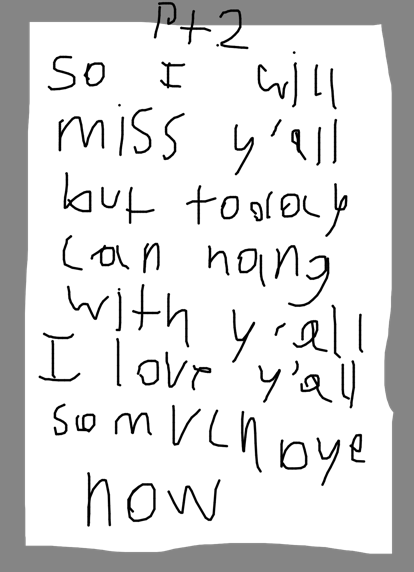 Pt.2
so I will
miss y'all
but today
can hang
with y'all
I love y'all
so much bye
now